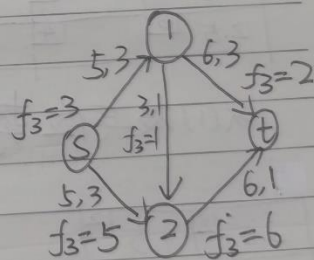 1
5,3
6,3
f₃=2
f₃=3
3,1
f₃=1
S
t
5,3
6,1
f₃=5
2
f₃=6